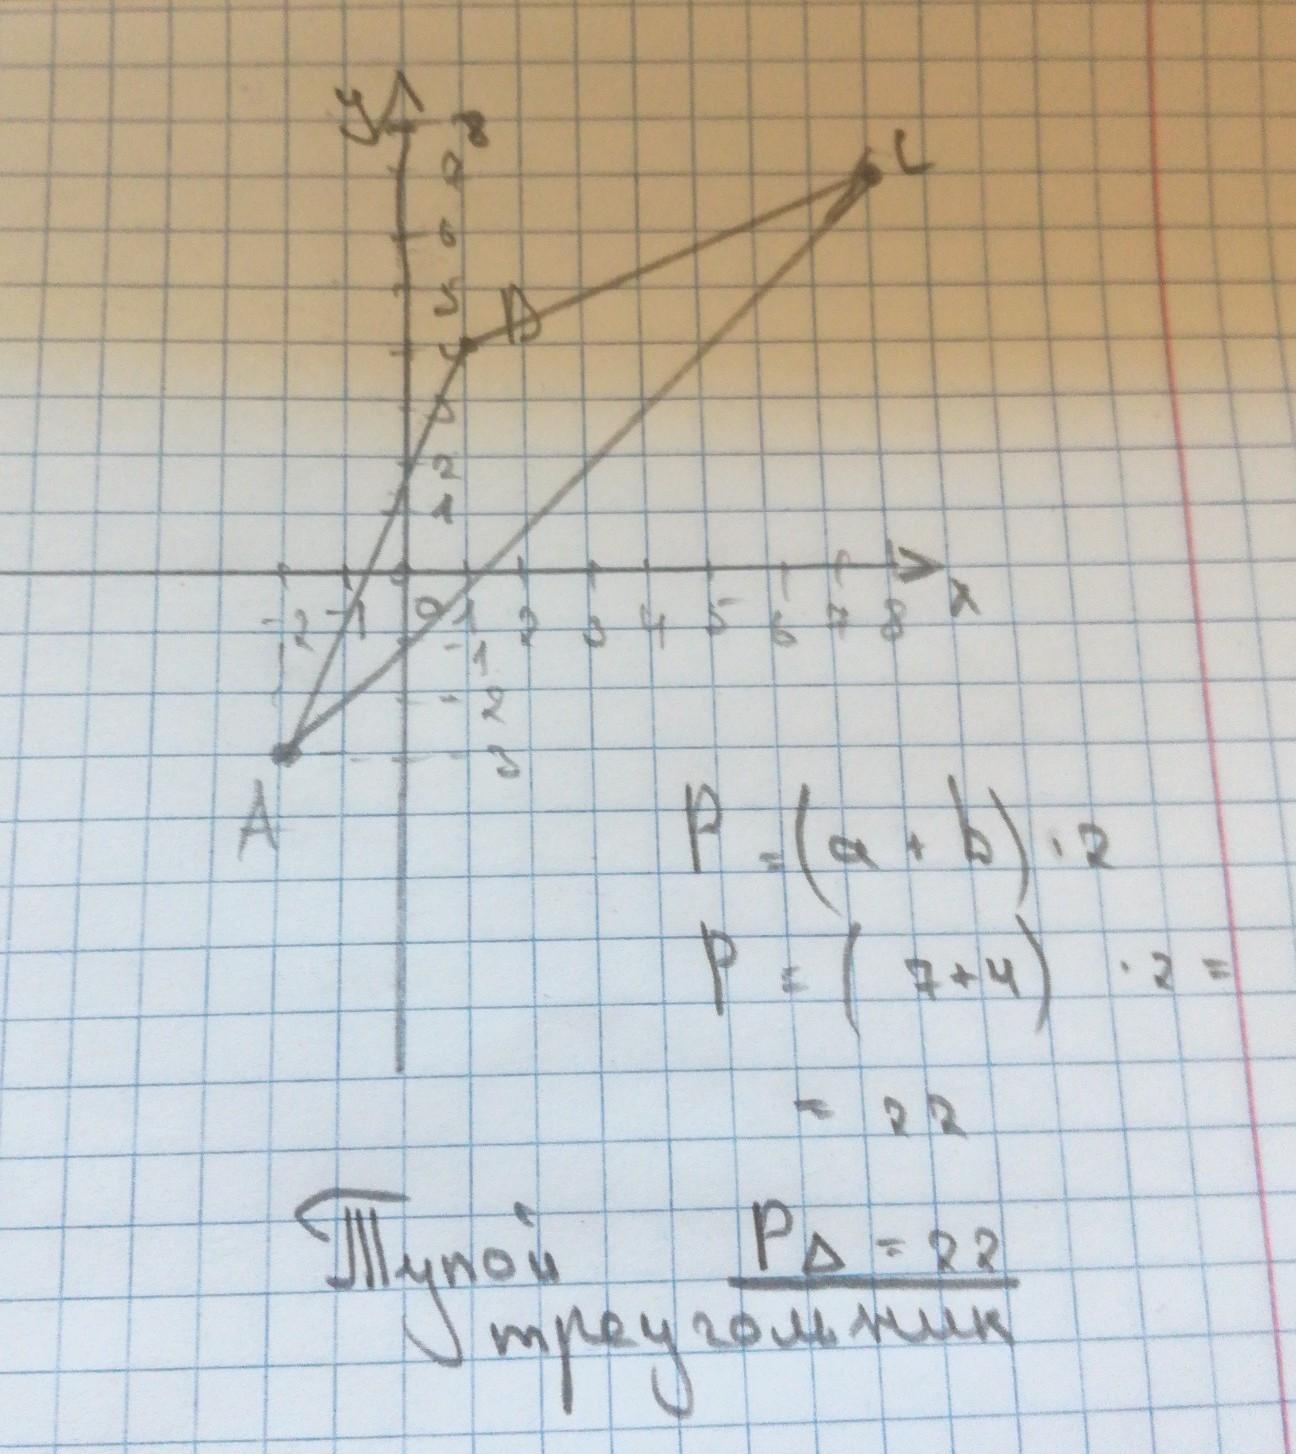 y 8
7 C
6
5 B
4
3
2
1
-2 -1 0 1 2 3 4 5 6 7 8 x
-1
-2
- 3
A
P = (a + b) · 2
P = ( 7+4) · 2 =
= 22
Тупой PΔ = 22
треугольник